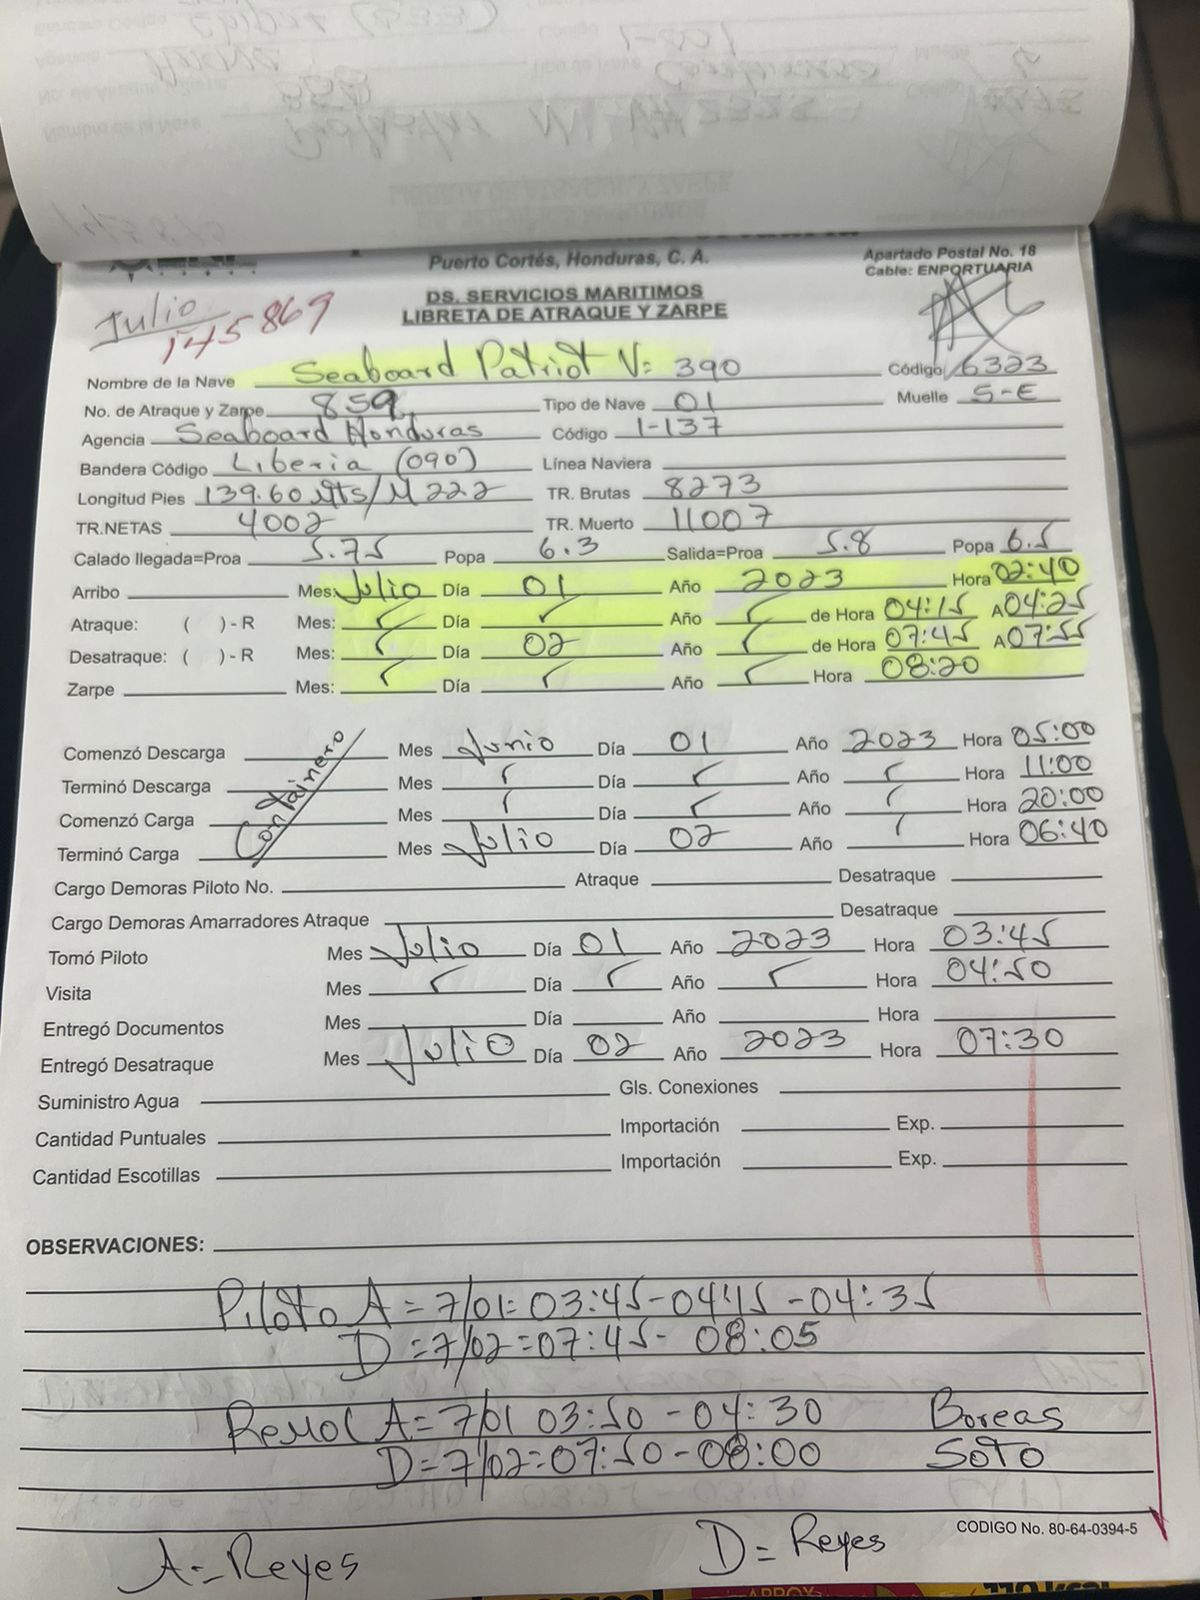 Puerto Cortés, Honduras, C. A.
Apartado Postal No. 18
Cable: ENPORTUARIA
DS. SERVICIOS MARITIMOS
LIBRETA DE ATRAQUE Y ZARPE
Julio
145869
Nombre de la Nave Seaboard Patriot V: 390 Código 6323
No. de Atraque y Zarpe 859 Tipo de Nave 01 Muelle 5-E
Agencia Seaboard Honduras Código 1-137
Bandera Código Liberia (090) Línea Naviera
Longitud Pies 139.60 Mts/M 222 TR. Brutas 8273
TR.NETAS 4002 TR. Muerto 11007
Calado llegada=Proa 5.75 Popa 6.3 Salida=Proa 5.8 Popa 6.5
Arribo Mes: Julio Día 01 Año 2023 Hora 02:40
Atraque: ( )-R Mes: Día Año de Hora 04:15 A 04:25
Desatraque: ( )-R Mes: Día 02 Año de Hora 07:45 A 07:55
Zarpe Mes: Día Año Hora 08:20
Containero
Comenzó Descarga Mes Junio Día 01 Año 2023 Hora 05:00
Terminó Descarga Mes Día Año Hora 11:00
Comenzó Carga Mes Día Año Hora 20:00
Terminó Carga Mes Julio Día 02 Año Hora 06:40
Cargo Demoras Piloto No. Atraque Desatraque
Cargo Demoras Amarradores Atraque Desatraque
Tomó Piloto Mes Julio Día 01 Año 2023 Hora 03:45
Visita Mes Día Año Hora 04:50
Entregó Documentos Mes Día Año Hora
Entregó Desatraque Mes Julio Día 02 Año 2023 Hora 07:30
Suministro Agua Gls. Conexiones
Cantidad Puntuales Importación Exp.
Cantidad Escotillas Importación Exp.
OBSERVACIONES:
Piloto A = 7/01: 03:45-04:15-04:35
D = 7/02=07:45- 08:05
Remol A= 7/01 03:50-04:30 Boreas
D=7/02=07:50-08:00 Soto
CODIGO No. 80-64-0394-5
A=Reyes D=Reyes